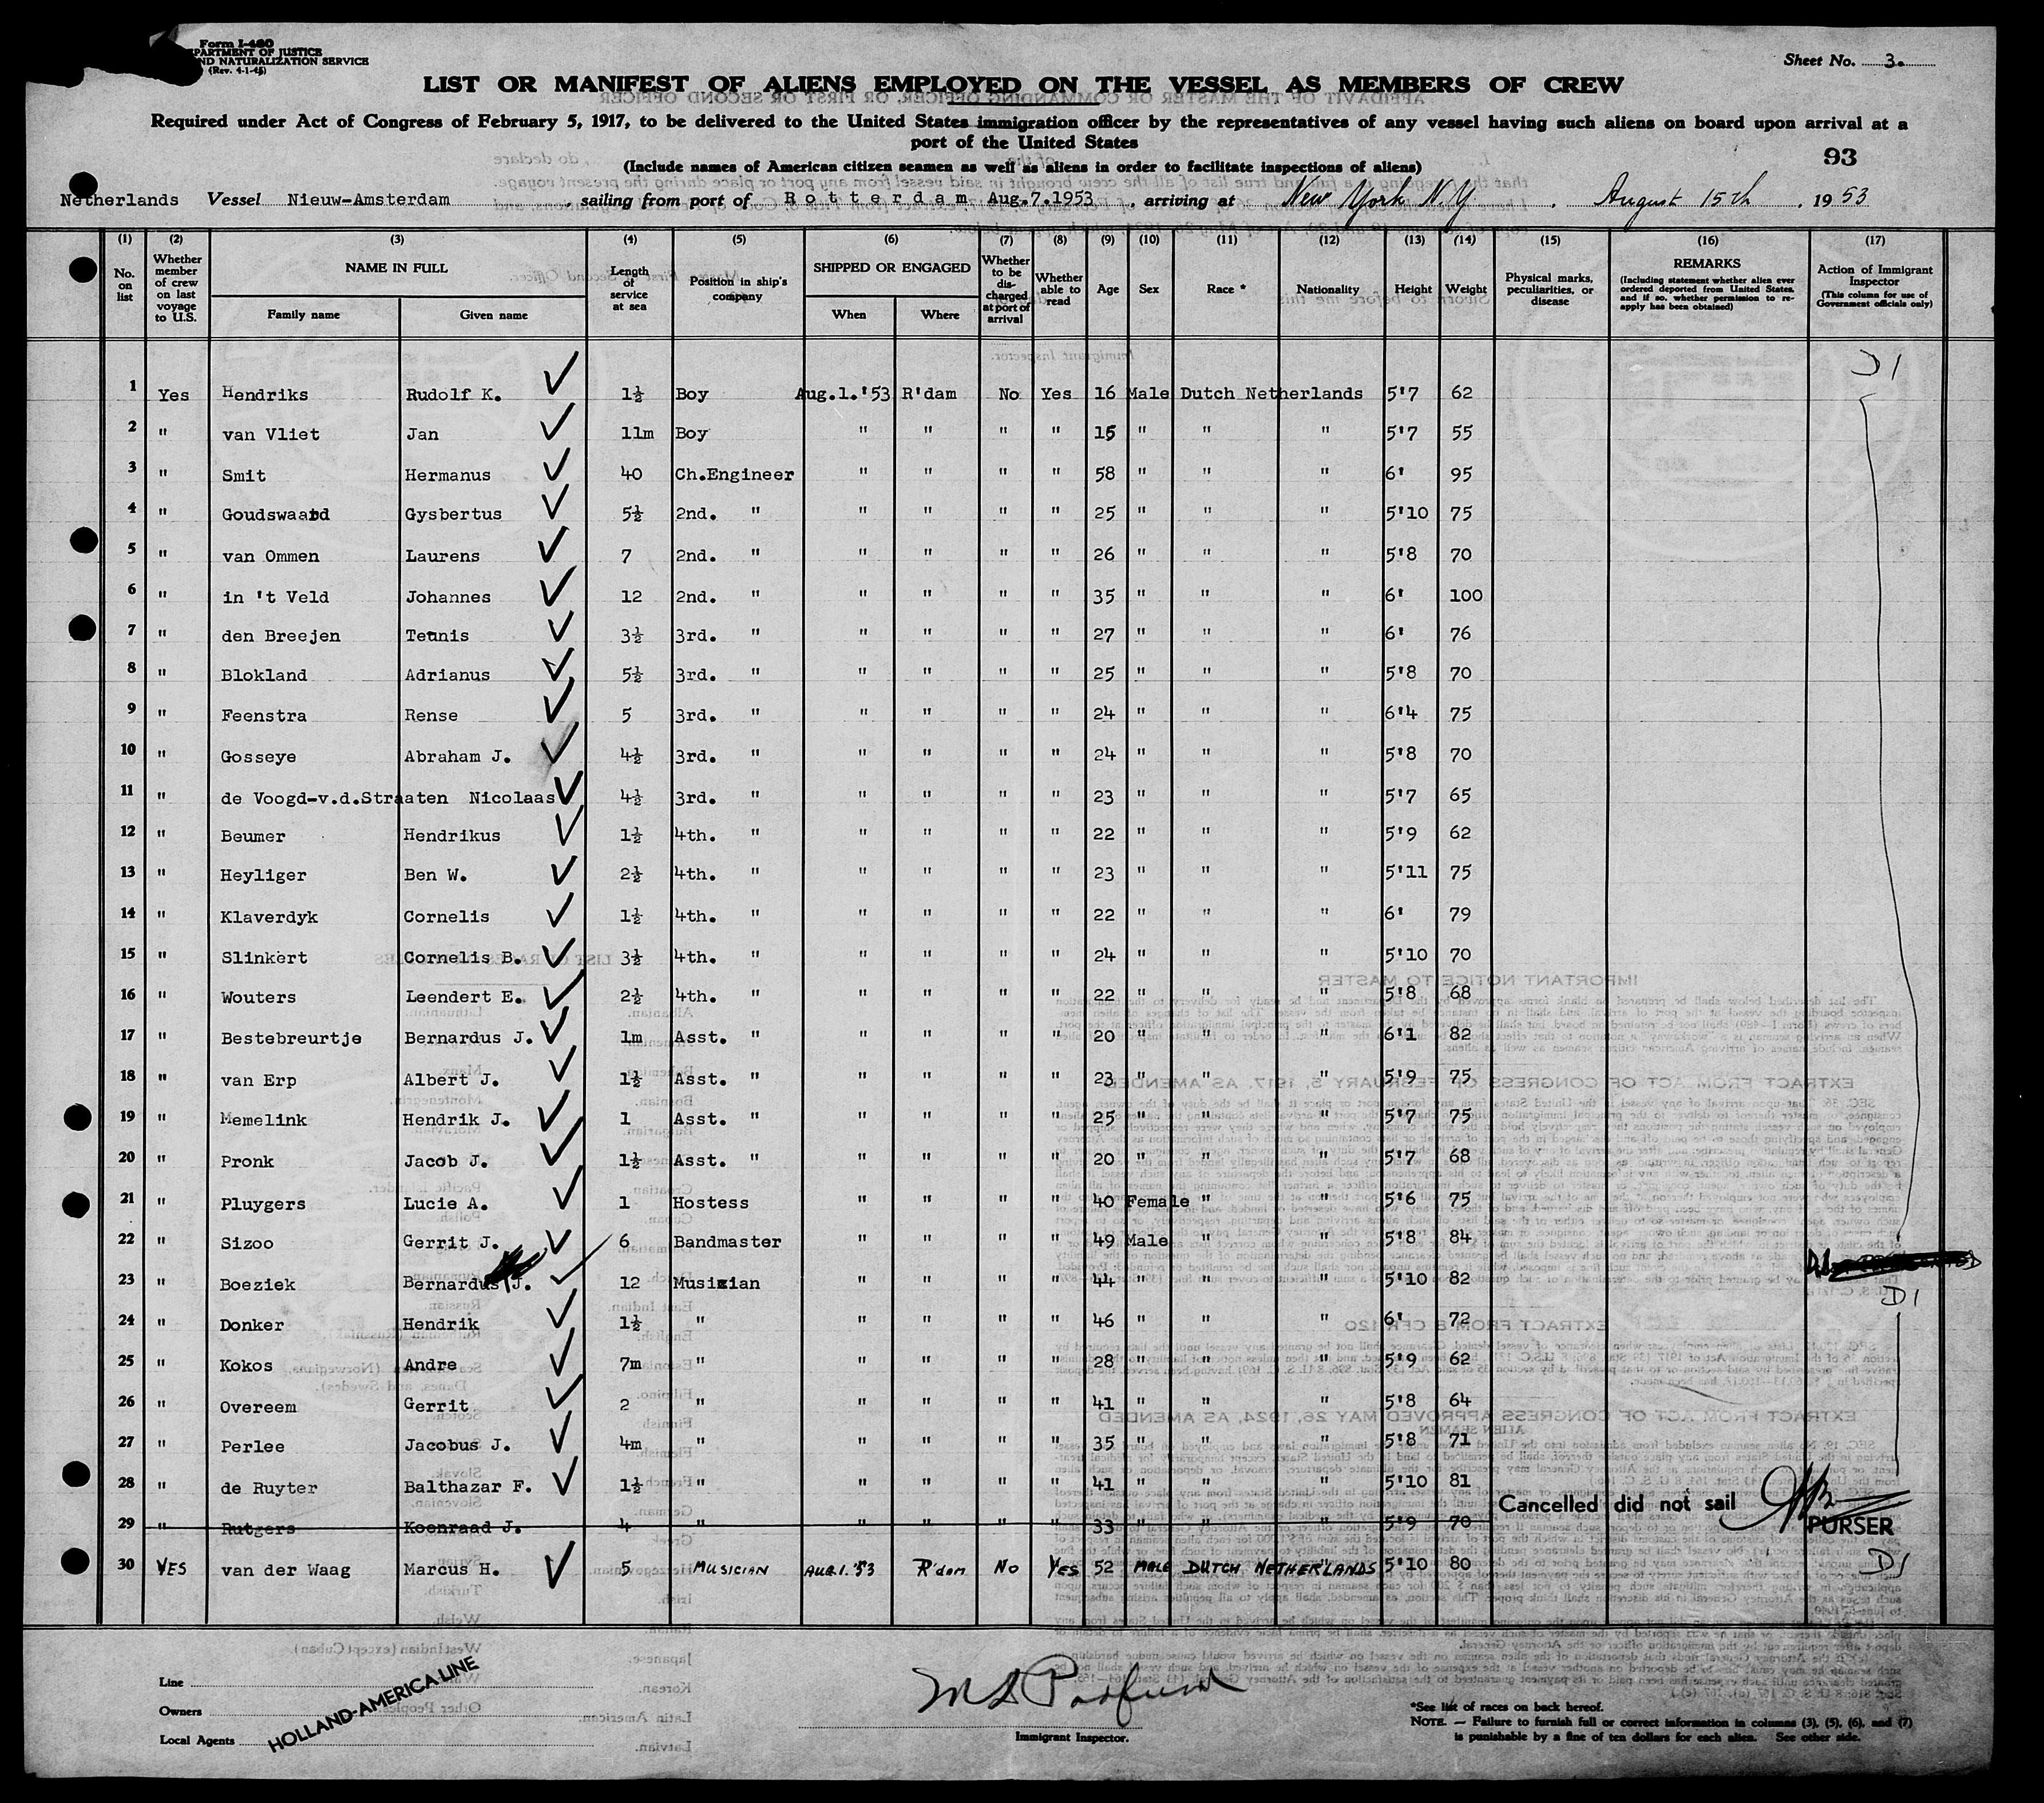 Form I-480
DEPARTMENT OF JUSTICE
AND NATURALIZATION SERVICE
(Rev. 4-1-45)
Sheet No. 3.
LIST OR MANIFEST OF ALIENS EMPLOYED ON THE VESSEL AS MEMBERS OF CREW
Required under Act of Congress of February 5, 1917, to be delivered to the United States immigration officer by the representatives of any vessel having such aliens on board upon arrival at a
port of the United States
(Include names of American citizen seamen as well as aliens in order to facilitate inspections of aliens)
93
Netherlands Vessel Nieuw-Amsterdam, sailing from port of Rotterdam Aug.7.1953, arriving at New York N.Y., August 15th, 1953
(1) (2) (3) (4) (5) (6) (7) (8) (9) (10) (11) (12) (13) (14) (15) (16) (17)
No. on list
Whether member of crew on last voyage to U.S.
NAME IN FULL
Family name
Given name
Length of service at sea
Position in ship's company
SHIPPED OR ENGAGED
When
Where
Whether to be discharged at port of arrival
Whether able to read
Age
Sex
Race *
Nationality
Height
Weight
Physical marks, peculiarities, or disease
REMARKS
(Including statement whether alien ever ordered deported from United States, and if so, whether permission to reapply has been obtained)
Action of Immigrant Inspector
(This column for use of Government officials only)
1 Yes Hendriks Rudolf K. 1½ Boy Aug.1.'53 R'dam No Yes 16 Male Dutch Netherlands 5'7 62 D1
2 " van Vliet Jan 11m Boy " " " " 15 " " " 5'7 55
3 " Smit Hermanus 40 Ch.Engineer " " " " 58 " " " 6' 95
4 " Goudswaard Gysbertus 5½ 2nd. " " " " " 25 " " " 5'10 75
5 " van Ommen Laurens 7 2nd. " " " " " 26 " " " 5'8 70
6 " in 't Veld Johannes 12 2nd. " " " " " 35 " " " 6' 100
7 " den Breejen Teunis 3½ 3rd. " " " " " 27 " " " 6' 76
8 " Blokland Adrianus 5½ 3rd. " " " " " 25 " " " 5'8 70
9 " Feenstra Rense 5 3rd. " " " " " 24 " " " 6'4 75
10 " Gosseye Abraham J. 4½ 3rd. " " " " " 24 " " " 5'8 70
11 " de Voogd-v.d.Straaten Nicolaas 4½ 3rd. " " " " " 23 " " " 5'7 65
12 " Beumer Hendrikus 1½ 4th. " " " " " 22 " " " 5'9 62
13 " Heyliger Ben W. 2½ 4th. " " " " " 23 " " " 5'11 75
14 " Klaverdyk Cornelis 1½ 4th. " " " " " 22 " " " 6' 79
15 " Slinkert Cornelis B. 3½ 4th. " " " " " 24 " " " 5'10 70
16 " Wouters Leendert E. 2½ 4th. " " " " " 22 " " " 5'8 68
17 " Bestebreurtje Bernardus J. 1m Asst. " " " " " 20 " " " 6'1 82
18 " van Erp Albert J. 1½ Asst. " " " " " 23 " " " 5'9 75
19 " Memelink Hendrik J. 1 Asst. " " " " " 25 " " " 5'7 75
20 " Pronk Jacob J. 1½ Asst. " " " " " 20 " " " 5'7 68
21 " Pluygers Lucie A. 1 Hostess " " " " 40 Female " " 5'6 75
22 " Sizoo Gerrit J. 6 Bandmaster " " " " 49 Male " " 5'8 84
23 " Boeziek Bernardus J. 12 Musician " " " " 44 " " " 5'10 82 D1
24 " Donker Hendrik 1½ " " " " " 46 " " " 6' 72
25 " Kokos Andre 7m " " " " " 28 " " " 5'9 62
26 " Overeem Gerrit 2 " " " " " 41 " " " 5'8 64
27 " Perlee Jacobus J. 4m " " " " " 35 " " " 5'8 71
28 " de Ruyter Balthazar F. 1½ " " " " " 41 " " " 5'10 81
Cancelled did not sail
29 " Rutgers Koenraad J. 4 " " " " " 33 " " " 5'9 70 PURSER
30 YES van der Waag Marcus H. 5 MUSICIAN AUG.1.'53 R'dam No YES 52 MALE DUTCH NETHERLANDS 5'10 80 D1
Line
Owners
Local Agents
HOLLAND-AMERICA LINE
Immigrant Inspector.
*See list of races on back hereof.
NOTE. — Failure to furnish full or correct information in columns (3), (5), (6), and (7)
is punishable by a fine of ten dollars for each alien. See other side.